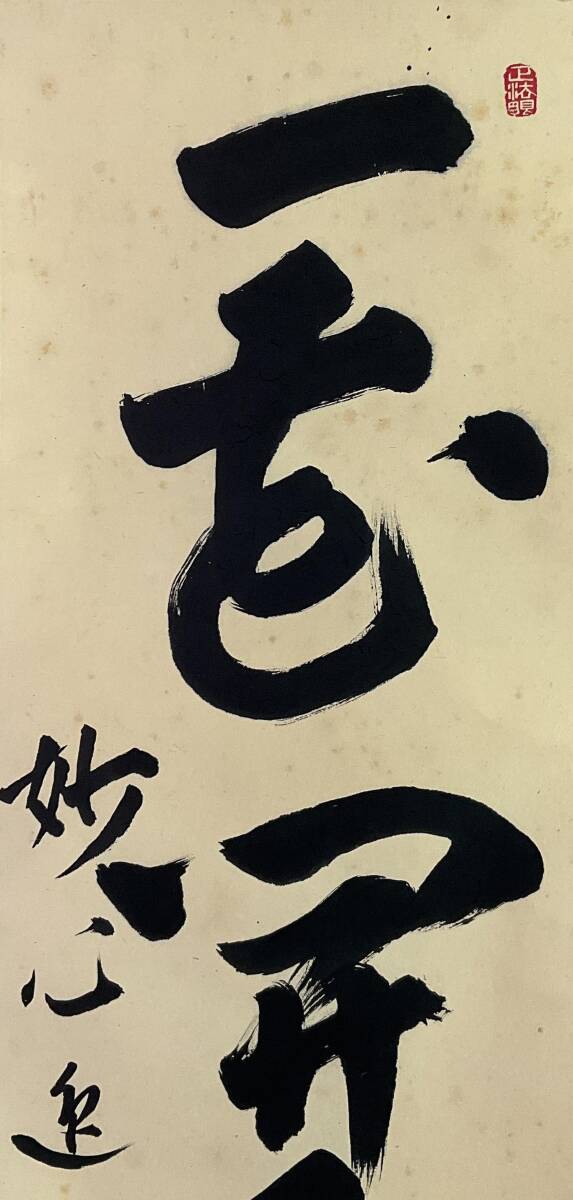 正法眼
一花開
妙心